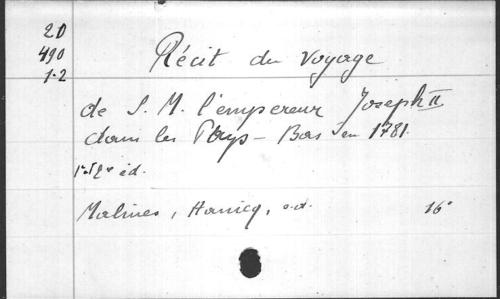 20
490
1-2
Récit du Voyage
de S. M. l'empereur Joseph II
dans les Pays-Bas en 1781.
1e et 2e éd.
Malines, Hanicq, s.d. 16°